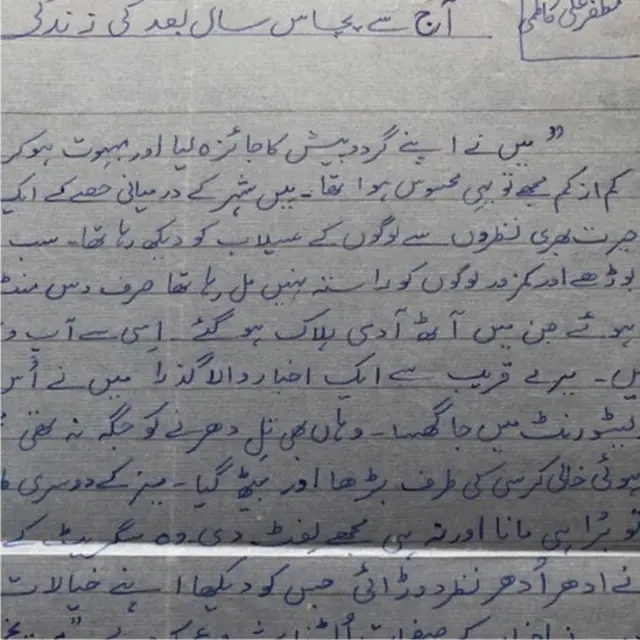 مظفر علی کاظمی
آج سے پچاس سال بعد کی زندگی
” میں نے اپنے گردوپیش کا جائزہ لیا اور مبہوت ہوکر
کم از کم مجھے تو یہی محسوس ہوا تھا۔ میں شہر کے درمیانی حصے کے ایک
حیرت بھری نظروں سے لوگوں کے سیلاب کو دیکھ رہا تھا۔ سب
بوڑھے اور کمزور لوگوں کو راستہ نہیں مل رہا تھا صرف دس منٹ
ہوئے جن میں آٹھ آدمی ہلاک ہو گئے۔ اسی سے آپ
ہیں۔ میرے قریب سے ایک اخبار والا گذرا میں نے اُس
میں جا گھسا۔ وہاں بھی تل دھرنے کو جگہ نہ تھی
ہوئی خالی کرسی کی طرف بڑھا اور بیٹھ گیا۔ میز کے دوسری
تو بُرا ہی مانا اور نہ ہی مجھے لفٹ دی وہ سگریٹ کے
نے ادھر اُدھر نظر دوڑائی جس کو دیکھا اپنے خیالات